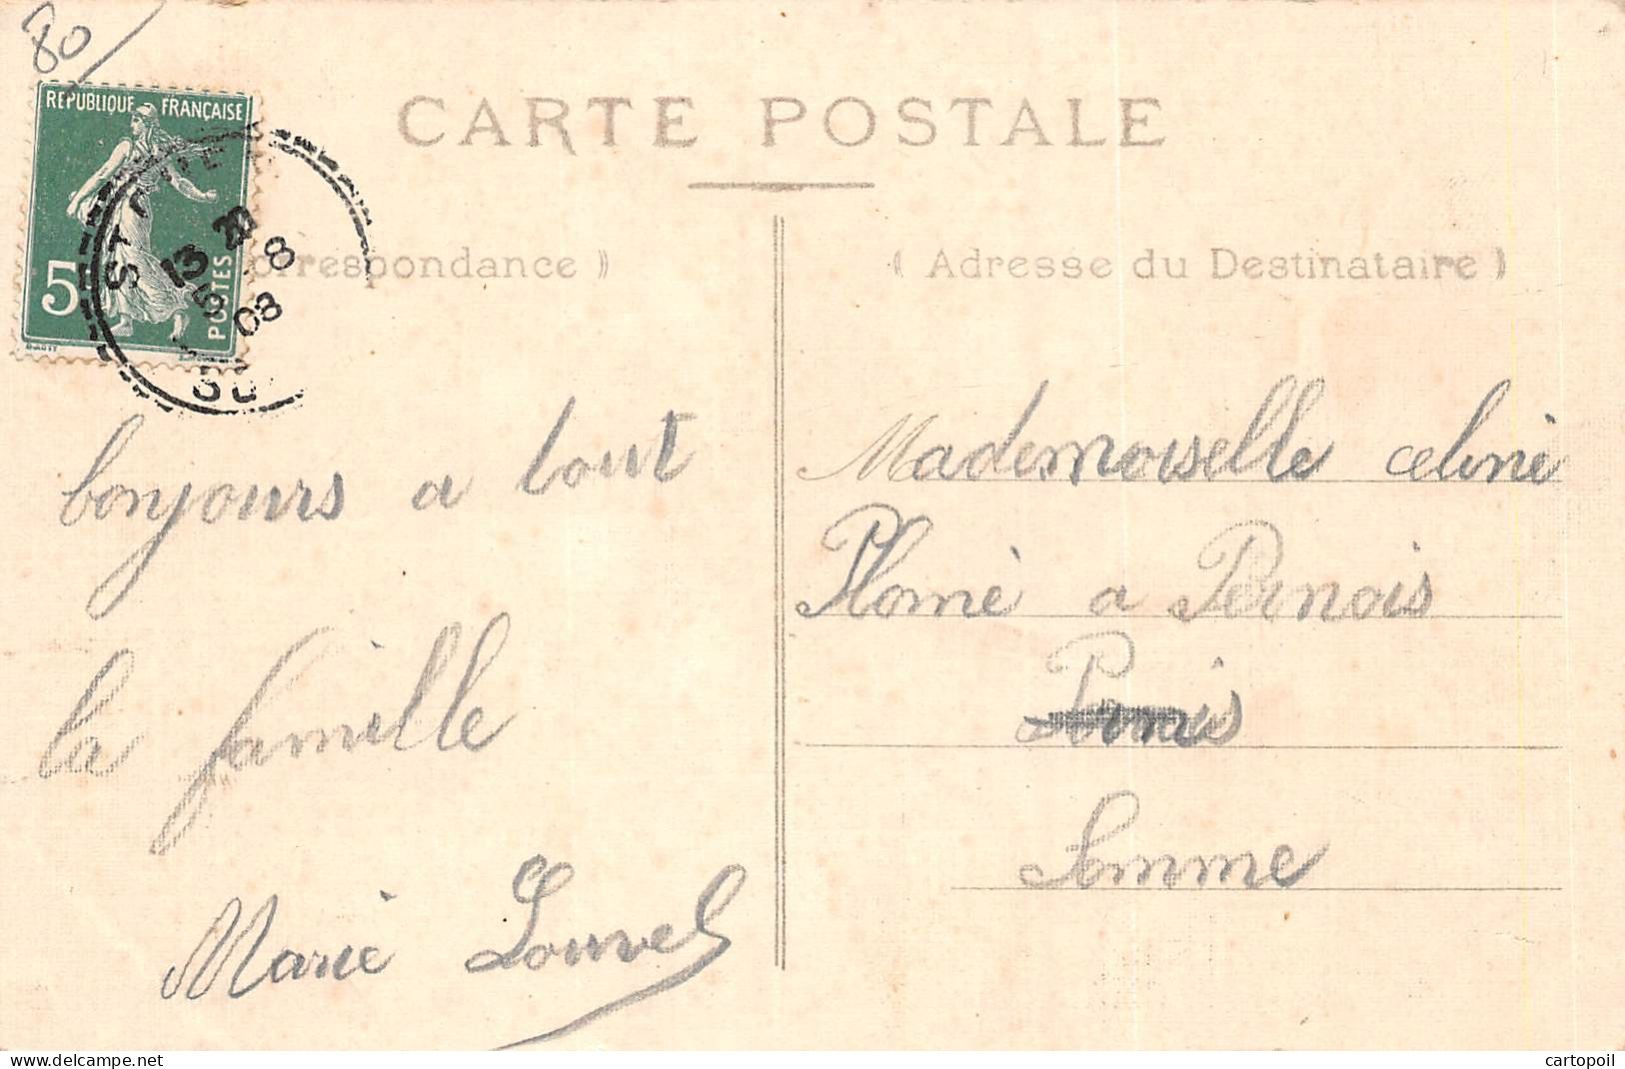 80
REPUBLIQUE FRANÇAISE
5
POSTES
ST
13
8
5
08
SO
CARTE POSTALE
orrespondance )
( Adresse du Destinataire )
bonjours a tout
la famille
Marie Louvel
Mademoiselle celine
Plomé a Pernois
Somme
delcampe.net
cartopoil